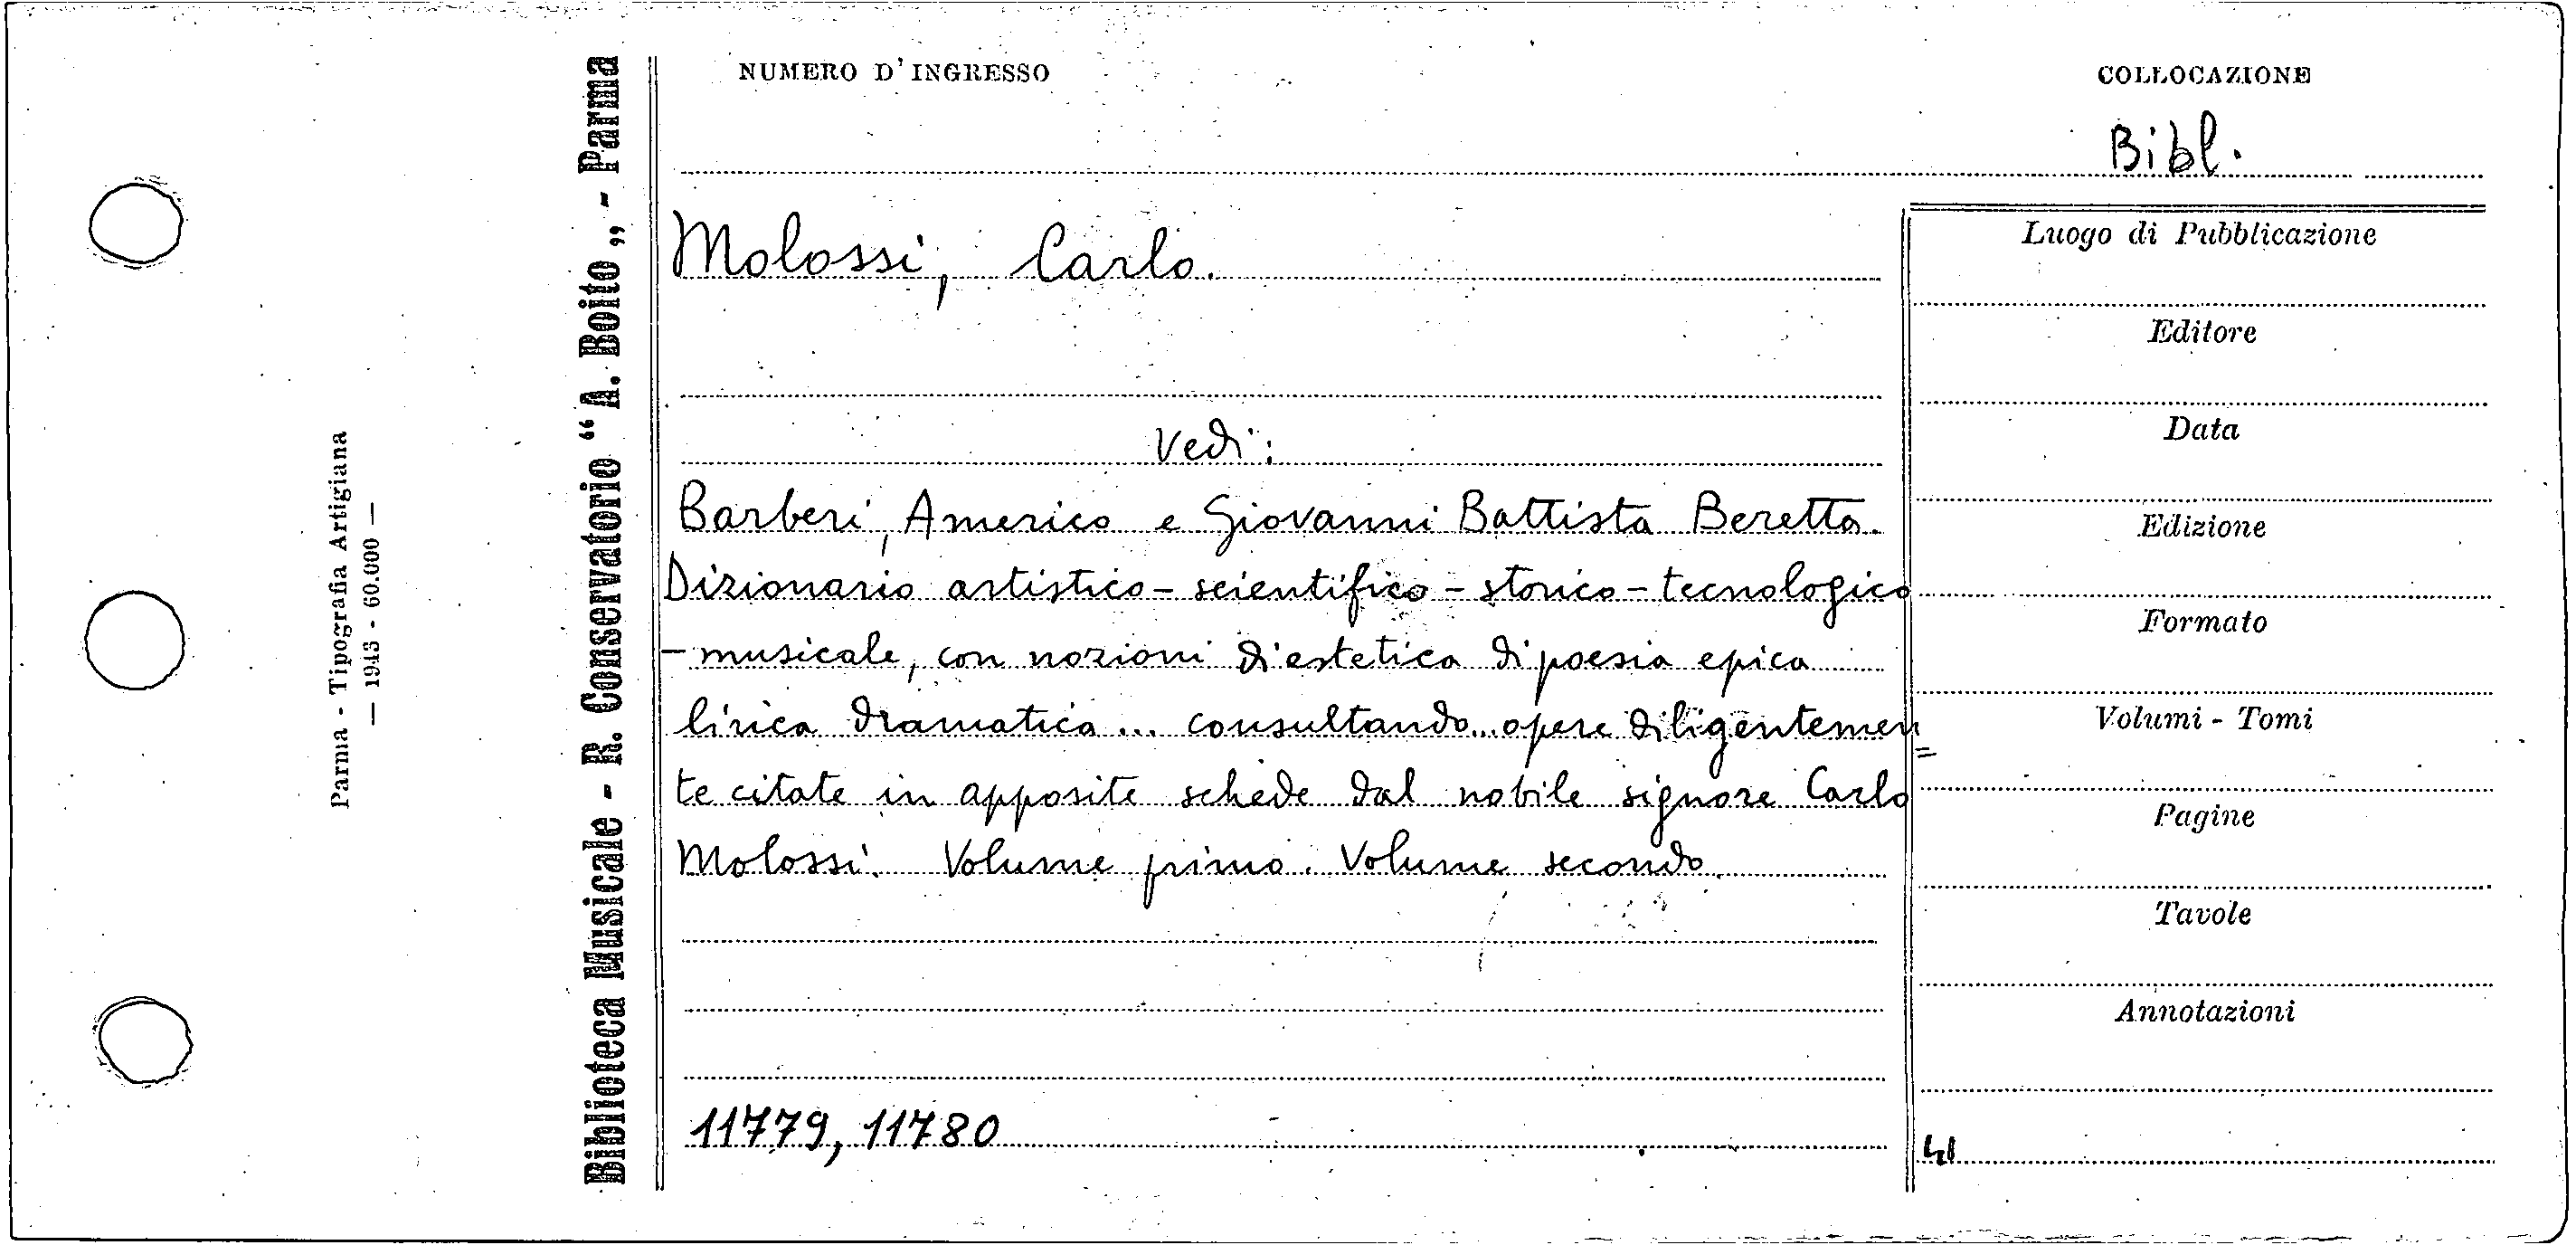 Parma - Tipografia Artigiana
— 1943 - 60.000 —
Biblioteca Musicale - R. Conservatorio “A. Boito„ - Parma
NUMERO D'INGRESSO
COLLOCAZIONE
Bibl.
Molossi, Carlo.
Vedi:
Barberi, Americo e Giovanni Battista Beretta.
Dizionario artistico-scientifico-storico-tecnologico
-musicale, con nozioni d'estetica di poesia epica
lirica dramatica... consultando...opere diligentemen=
te citate in apposite schede dal nobile signore Carlo
Molossi. Volume primo. Volume secondo.
11779, 11780
Luogo di Pubblicazione
Editore
Data
Edizione
Formato
Volumi - Tomi
Pagine
Tavole
Annotazioni